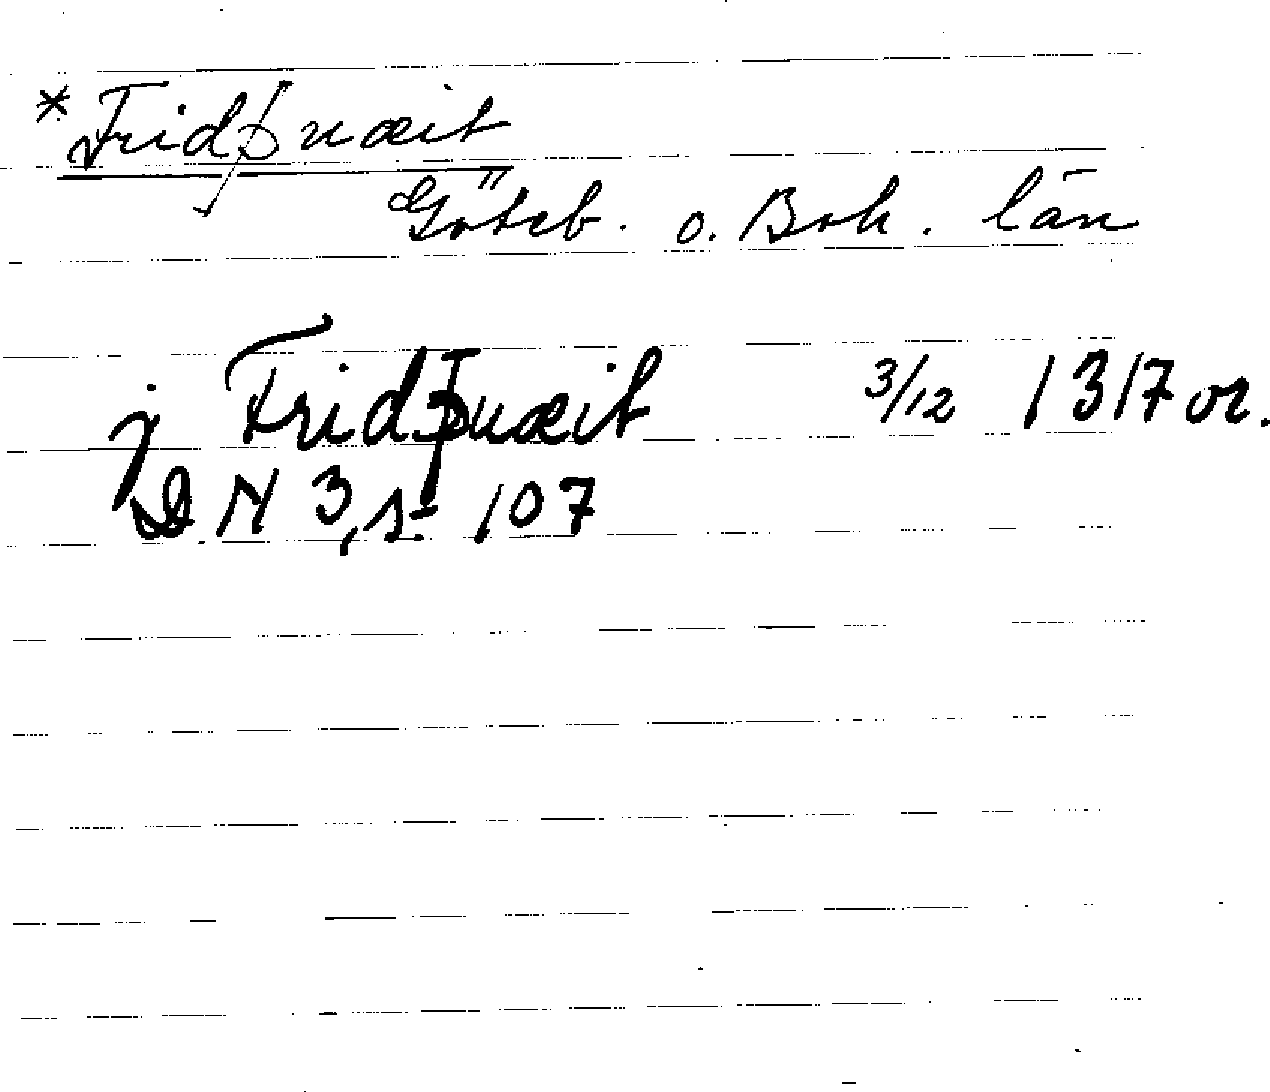 * Fridþuæit
Göteb. o. Boh. län
j Fridþuæit 3/12 1317 or.
DN 3, s. 107